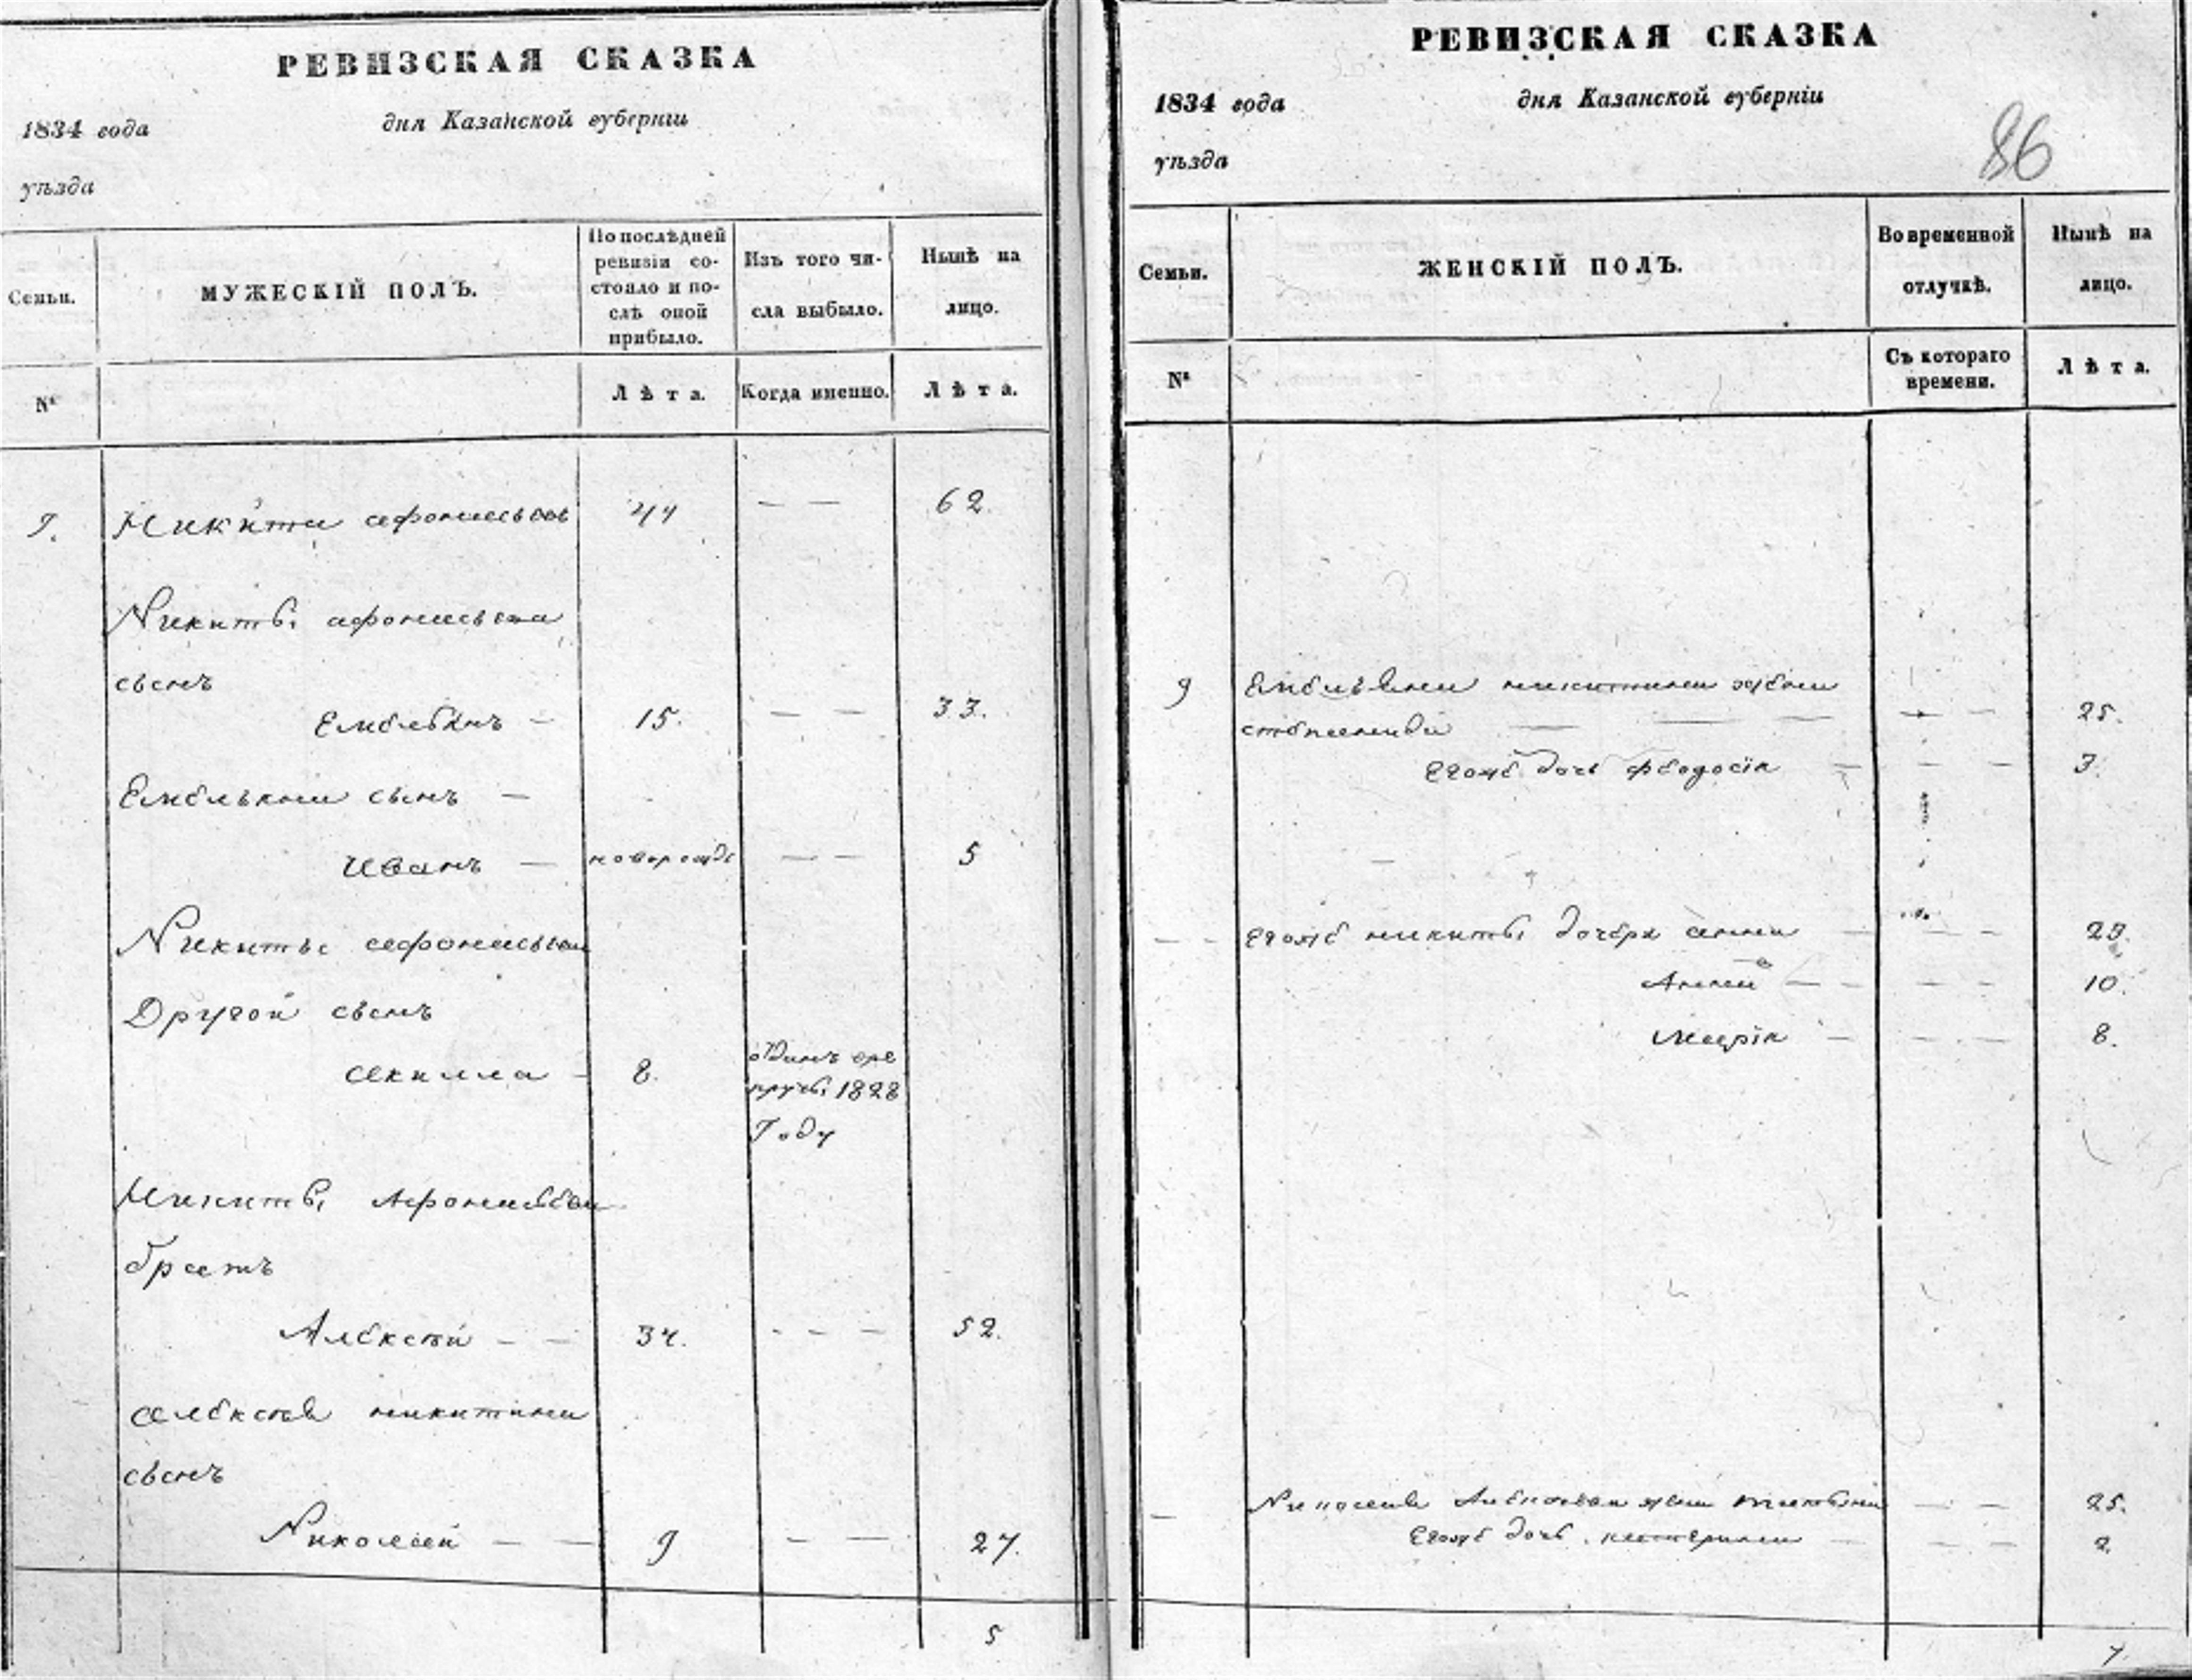 РЕВИЗСКАЯ СКАЗКА
1834 года
дня Казанской губерніи
уѣзда
Семьи.
МУЖЕСКІЙ ПОЛЪ.
По послѣдней
ревизіи со-
стояло и по-
слѣ оной
прибыло.
Изъ того чи-
сла выбыло.
Нынѣ на
лицо.
№
Лѣта.
Когда именно.
Лѣта.
9. Никита афонасьевъ 44 — — 62.
Никиты афонасьева
сынъ
Емельянъ — 15. — — 33.
Емельяна сынъ —
Иванъ — новорожде — — 5
Никиты афонасьева
Другой сынъ
акилла — 8.
1828
Году
Никиты Афонасьева
братъ
Алексѣй — — 34. - - — 52.
алексѣя никитина
сынъ
Николай — — 9 — — 27.
5
РЕВИЗСКАЯ СКАЗКА
86
1834 года
дня Казанской губерніи
уѣзда
Семьи.
ЖЕНСКІЙ ПОЛЪ.
Во временной
отлучкѣ.
Нынѣ на
лицо.
№
Съ котораго
времени.
Лѣта.
9 Емельяна никитина жена
степанида — — — — — 25.
Егоже дочь феодосія — — — 3.
— - Егоже никиты дочери анна — — — 23.
Анна — - — — 10.
Марія — — - — 8.
— Николая Алексѣева жена — — 25.
Егоже дочь катерина — — — 2.
7.